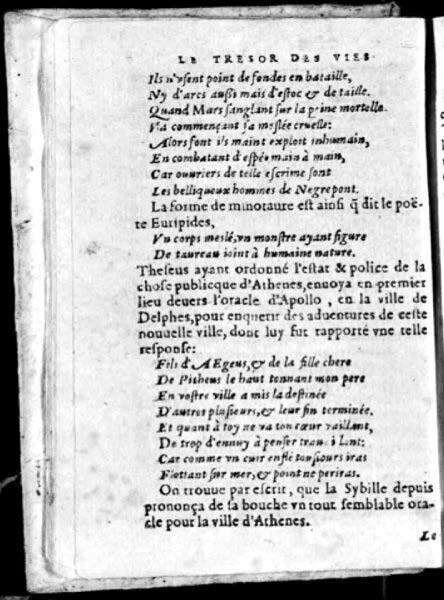 LE TRESOR DES VIES
Ils n'vsent point de fondes en bataille,
Ny d'arcs aussi mais d'estoc & de taille.
Quand Mars sanglant sur la plaine mortelle
Va commençant sa meslée cruelle:
Alors font ils maint exploit inhumain,
En combatant d'espée main à main,
Car ouuriers de telle escrime sont
Les belliqueux hommes de Negrepont.
La forme de minotaure est ainsi q̃ dit le poë-
te Euripides,
Vn corps meslé, vn monstre ayant figure
De taureau ioint à humaine nature.
Theseus ayant ordonné l'estat & police de la
chose publicque d'Athenes, enuoya en premier
lieu deuers l'oracle d'Apollo, en la ville de
Delphes, pour enquerir des aduentures de ceste
nouuelle ville, dont luy fut rapporté vne telle
response:
Fils d'AEgeus, & de la fille chere
De Pitheus le haut tonnant mon pere
En vostre ville a mis la destinée
D'autres plusieurs, & leur fin terminée.
Et quant à toy ne va ton cœur vaillant,
De trop d'ennuy à penser
Car comme vn cuir enflé tousiours iras
Flottant sur mer, & point ne periras.
On trouue par escrit, que la Sybille depuis
prononça de sa bouche vn tout semblable ora-
cle pour la ville d'Athenes.
Le